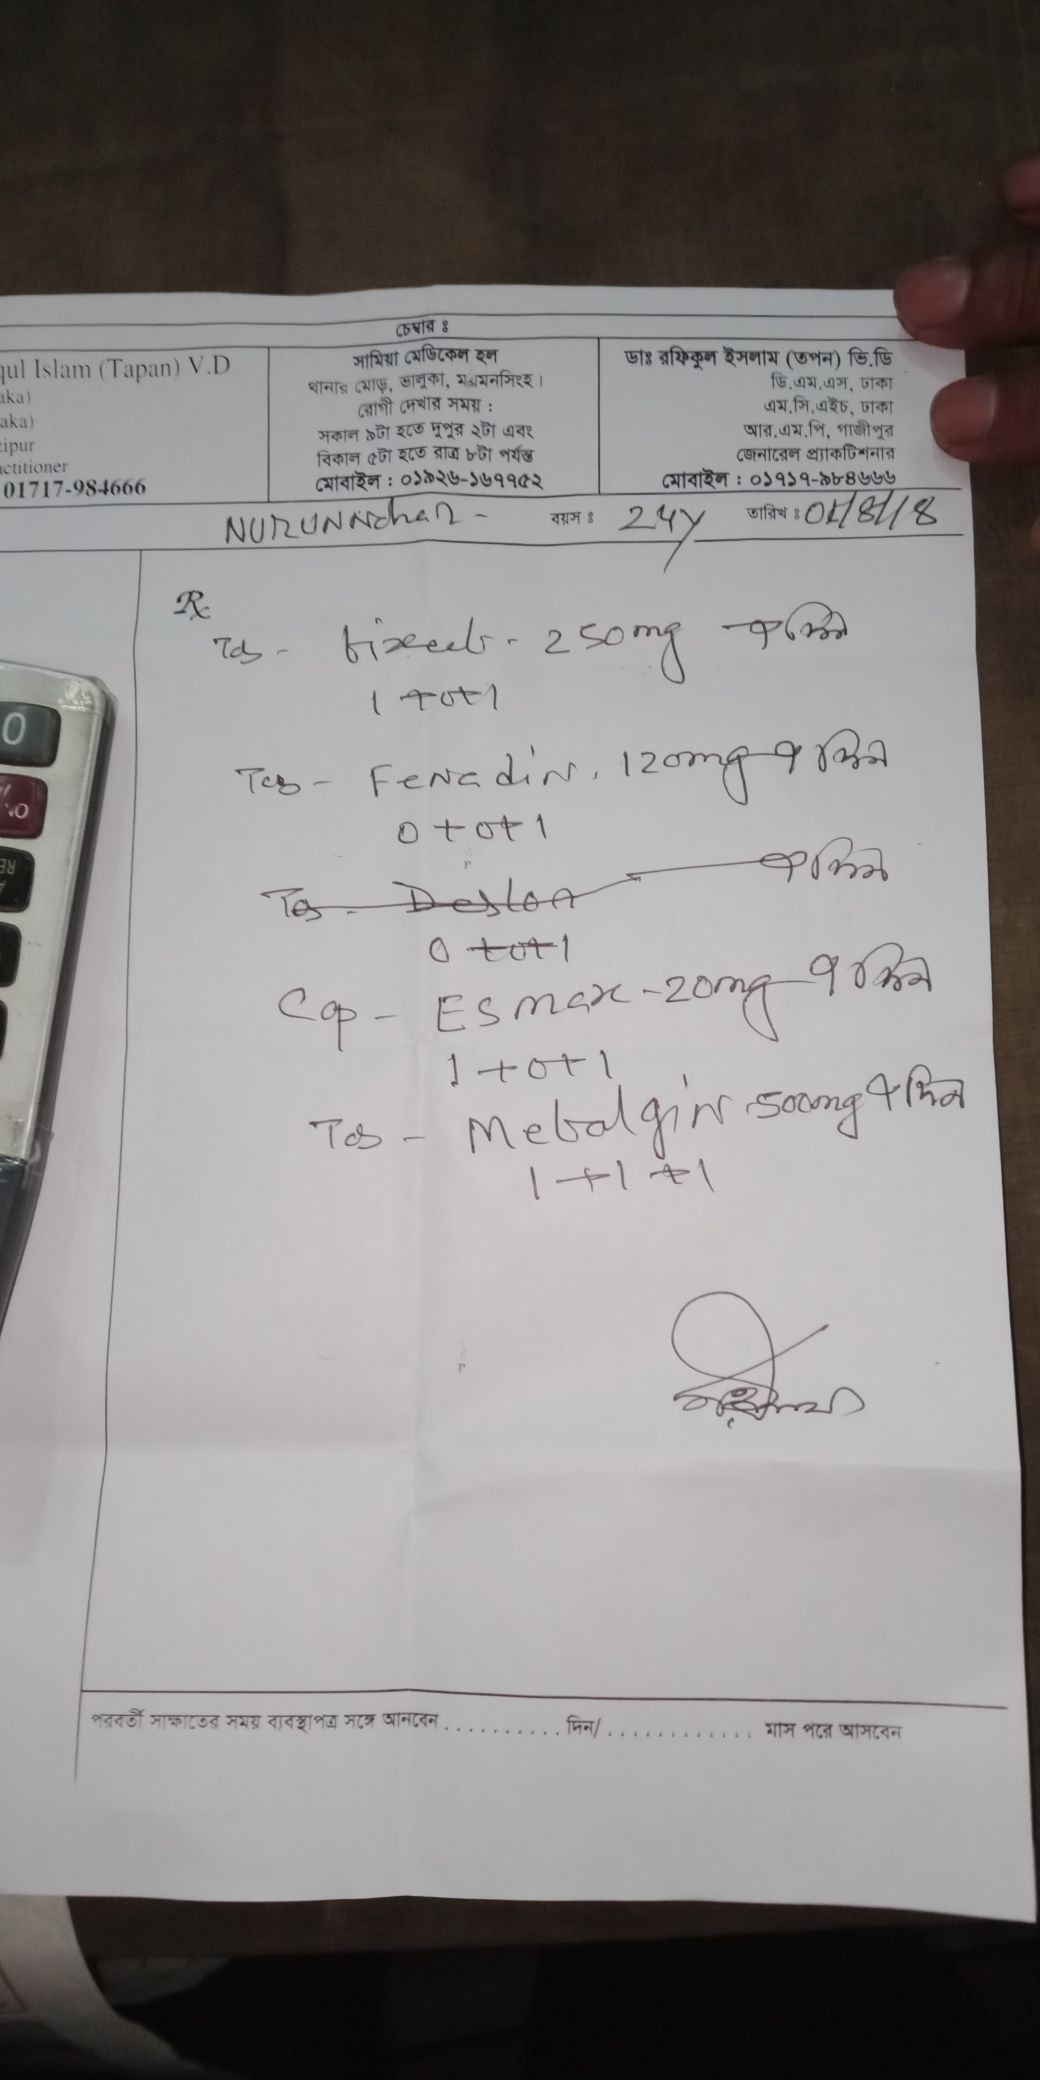 চেম্বার ঃ
qul Islam (Tapan) V.D
aka)
aka)
zipur
actitioner
01717-984666
সামিয়া মেডিকেল হল
থানার মোড়, ভালুকা, ময়মনসিংহ।
রোগী দেখার সময় :
সকাল ৯টা হতে দুপুর ২টা এবং
বিকাল ৫টা হতে রাত্র ৮টা পর্যন্ত
মোবাইল : ০১৯২৬-১৬৭৭৫২
ডাঃ রফিকুল ইসলাম (তপন) ভি.ডি
ডি.এম.এস, ঢাকা
এম.সি.এইচ, ঢাকা
আর.এম.পি, গাজীপুর
জেনারেল প্র্যাকটিশনার
মোবাইল : ০১৭১৭-৯৮৪৬৬৬
বয়স ঃ 24y তারিখ ঃ
Rx
Tab - 250mg ৭ দিন
1+0+1
Tab - Fenadin. 120mg ৭ দিন
0+0+1
Tab - Deslon ৭ দিন
0+0+1
Cap - ESmax - 20mg ৭ দিন
1+0+1
Tab - 500mg ৭ দিন
1+1+1
পরবর্তী সাক্ষাতের সময় ব্যবস্থাপত্র সঙ্গে আনবেন .......... দিন/ ............. মাস পরে আসবেন